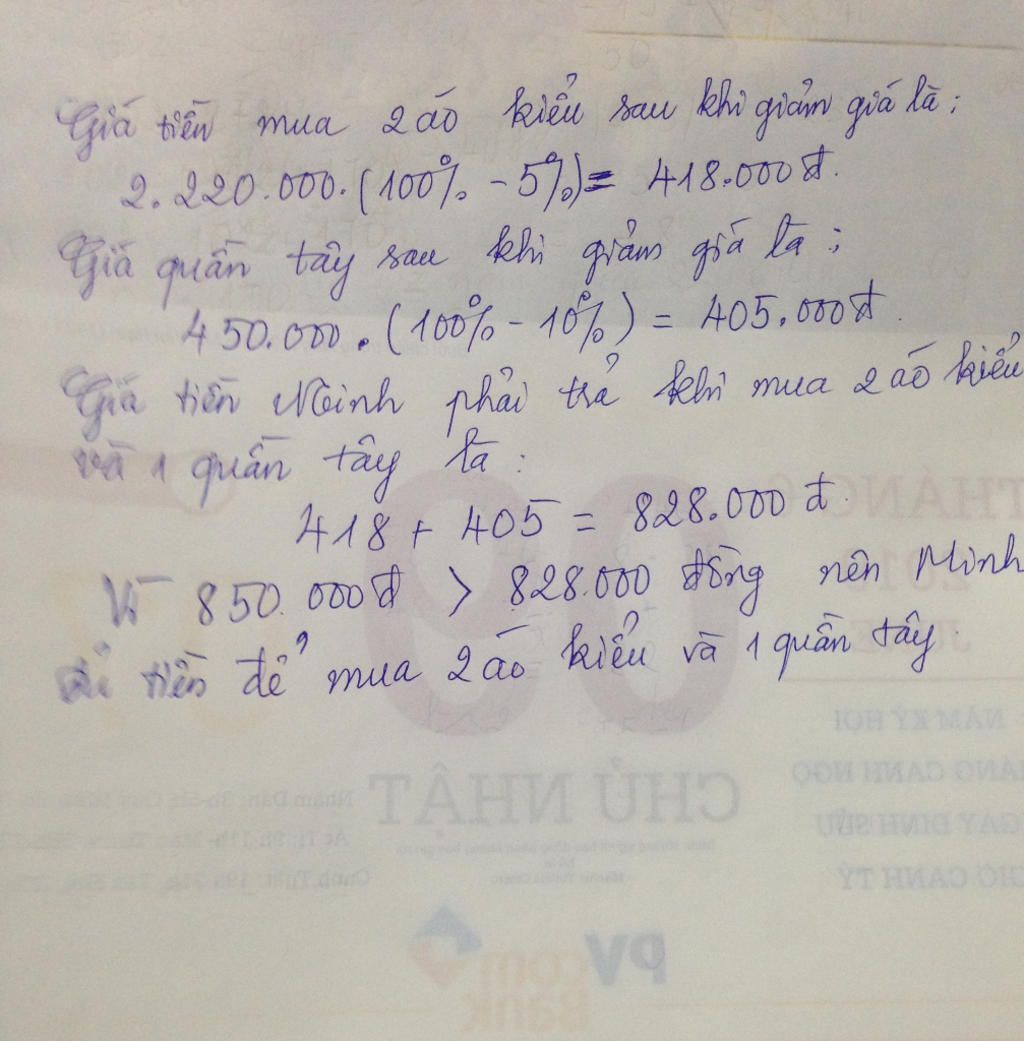 Giá tiền mua 2 áo kiểu sau khi giảm giá là:
2.220.000.(100% - 5%) = 418.000đ.
Giá quần tây sau khi giảm giá là:
450.000.(100% - 10%) = 405.000đ.
Giá tiền Minh phải trả khi mua 2 áo kiểu
và 1 quần tây là:
418 + 405 = 828.000đ.
Vì 850.000đ > 828.000 đồng nên Minh
đủ tiền để mua 2 áo kiểu và 1 quần tây.
THÁNG 6
2019
JUNE
09
NĂM KỶ HỢI
THÁNG CANH NGỌ
NGÀY ĐINH SỬU
GIỜ CANH TÝ
CHỦ NHẬT
PV
com
Bank